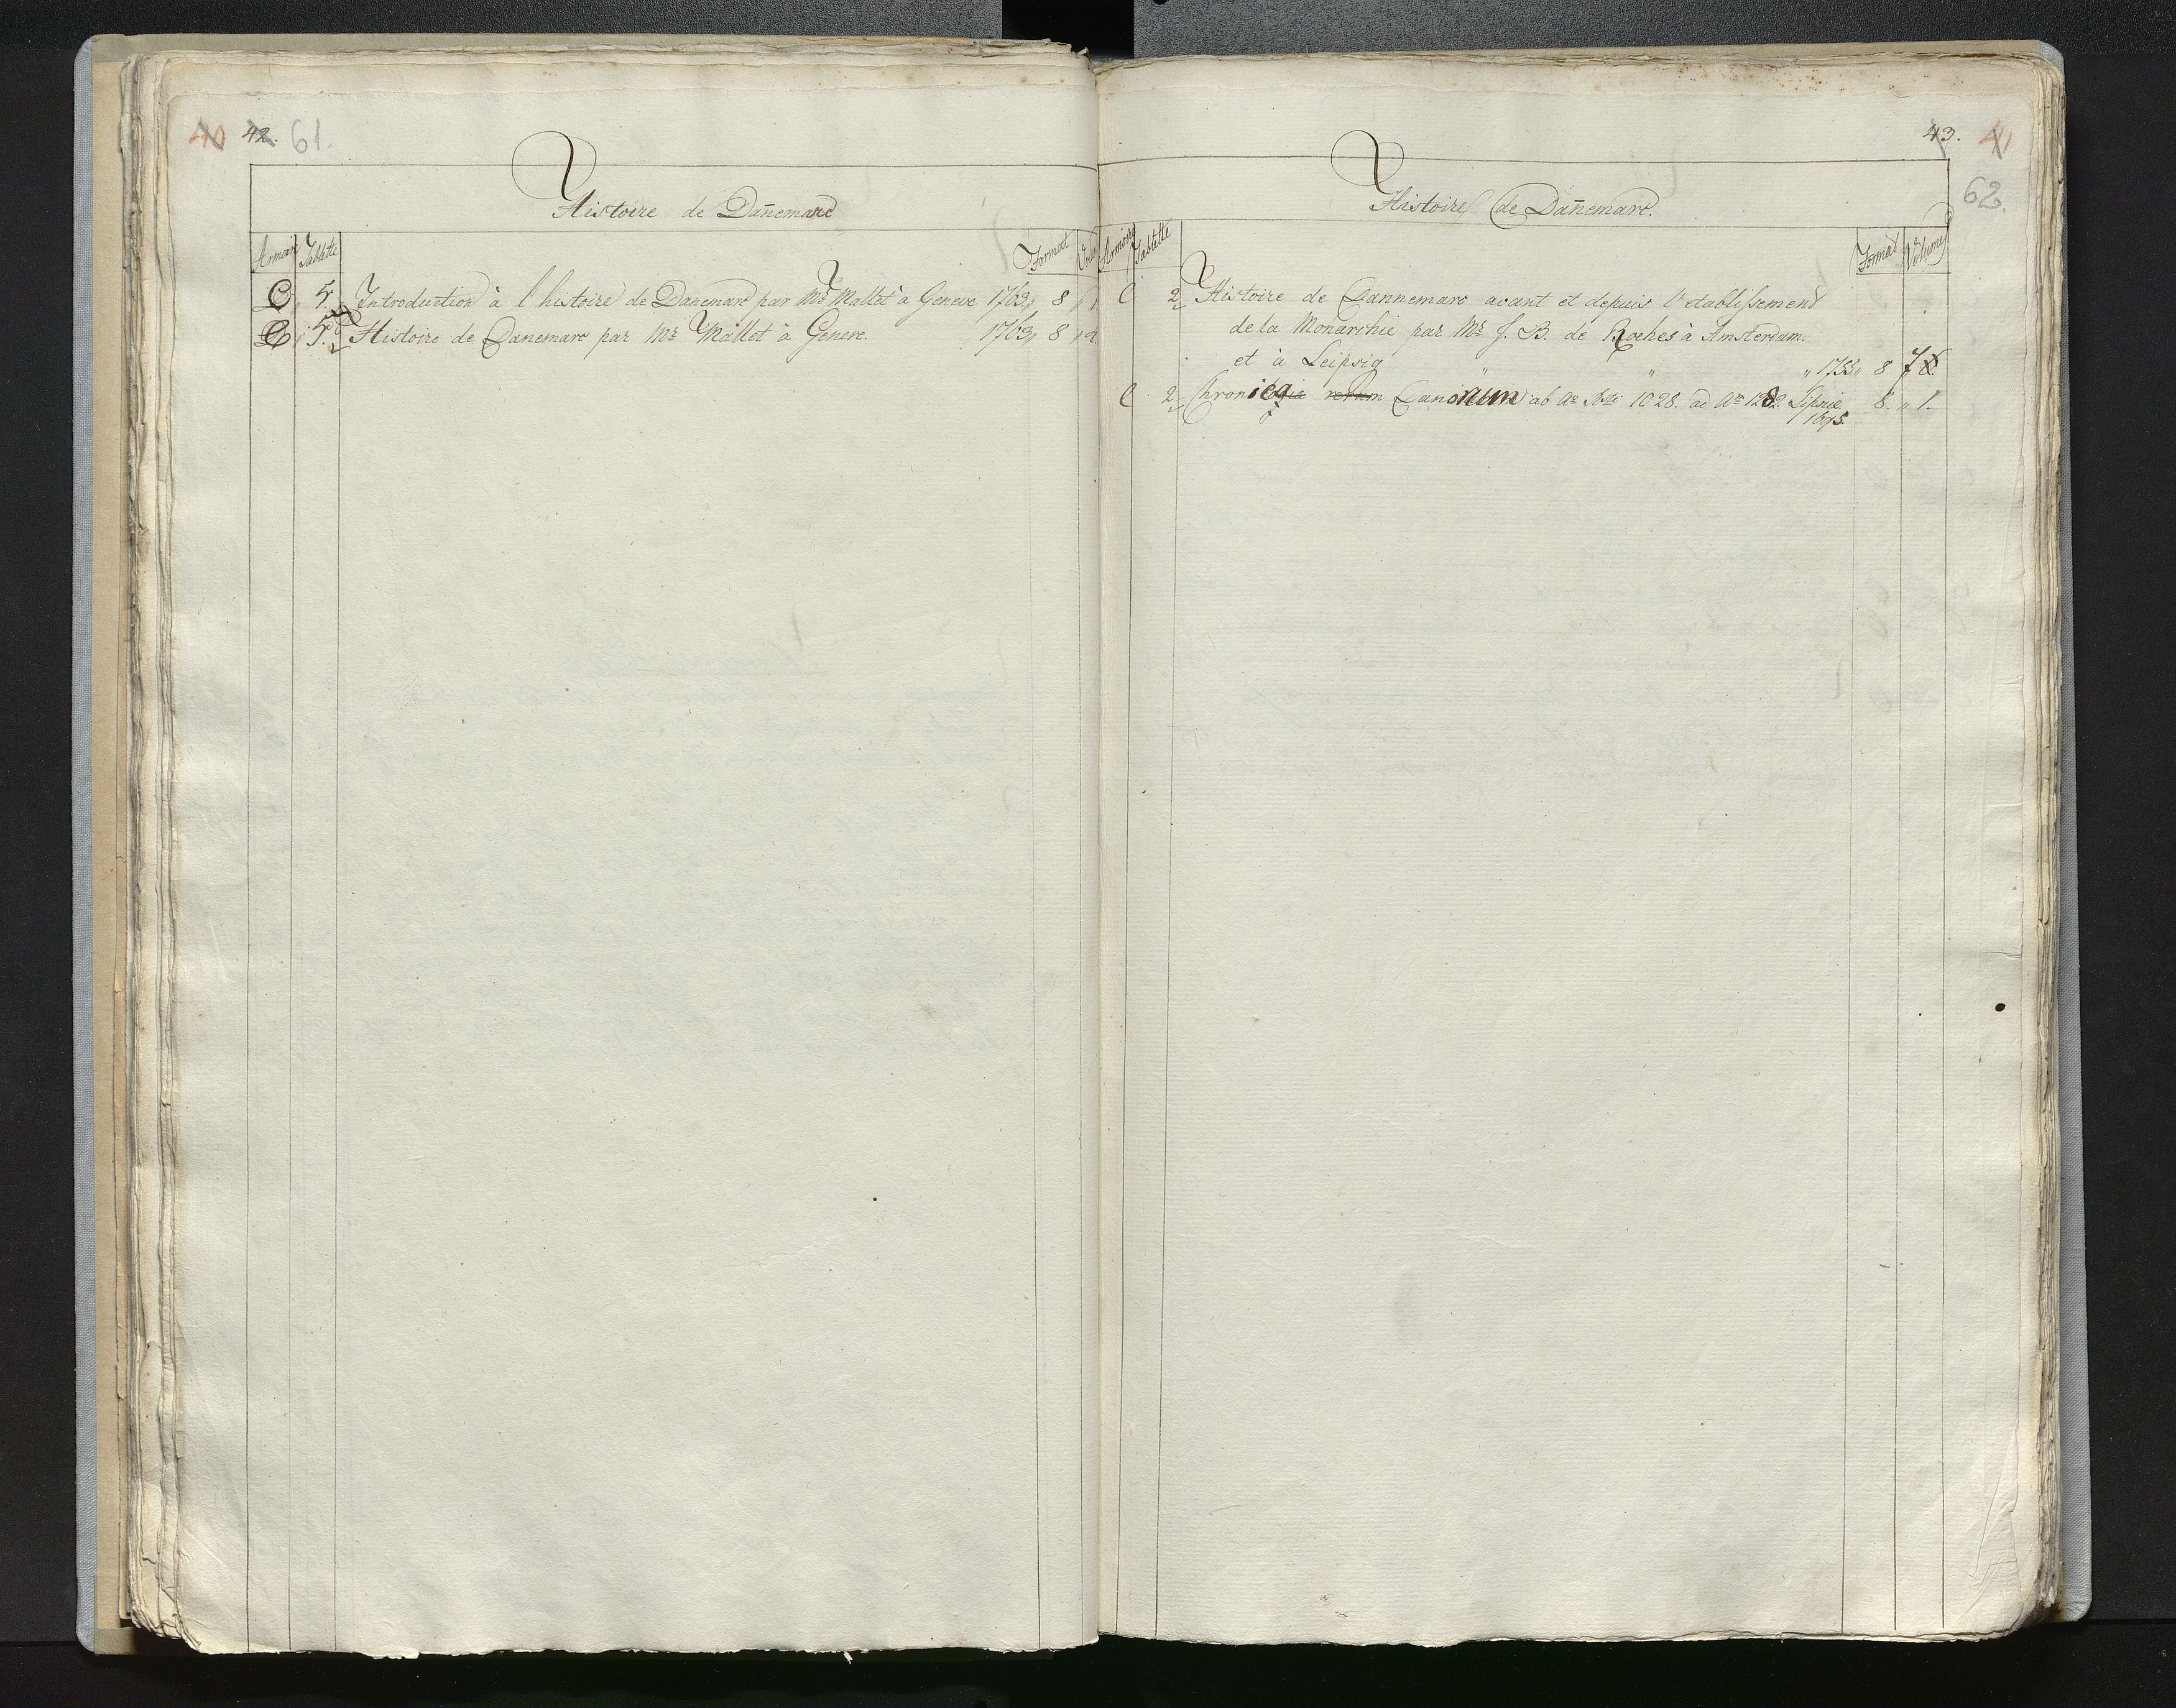 40 42. 61.
Histoire de Dañemarc
Armoire Tablette Format Vol
C 5 Introduction à l'histoire de Danemarc par Mr. Mallet à Geneve 1763 „ 8 „ 1.
C 5. Histoire de Danemarc par Mr. Mallet à Geneve. 1763 „ 8 „ 2.
43. 41
62.
Histoire de Dañemarc.
Armoire Tablette Format Volume
C 2 Histoire de Dannemarc avant et depuis l'etablissement
de la Monarchie par Mr. J. B. de Roches à Amsterdam.
et à Leipsig „ „ „ 8 7
C 2 Chronica Danorum ab Ao 1028. ad Am 1282. Lipsiæ 8. „ 1.
1695.